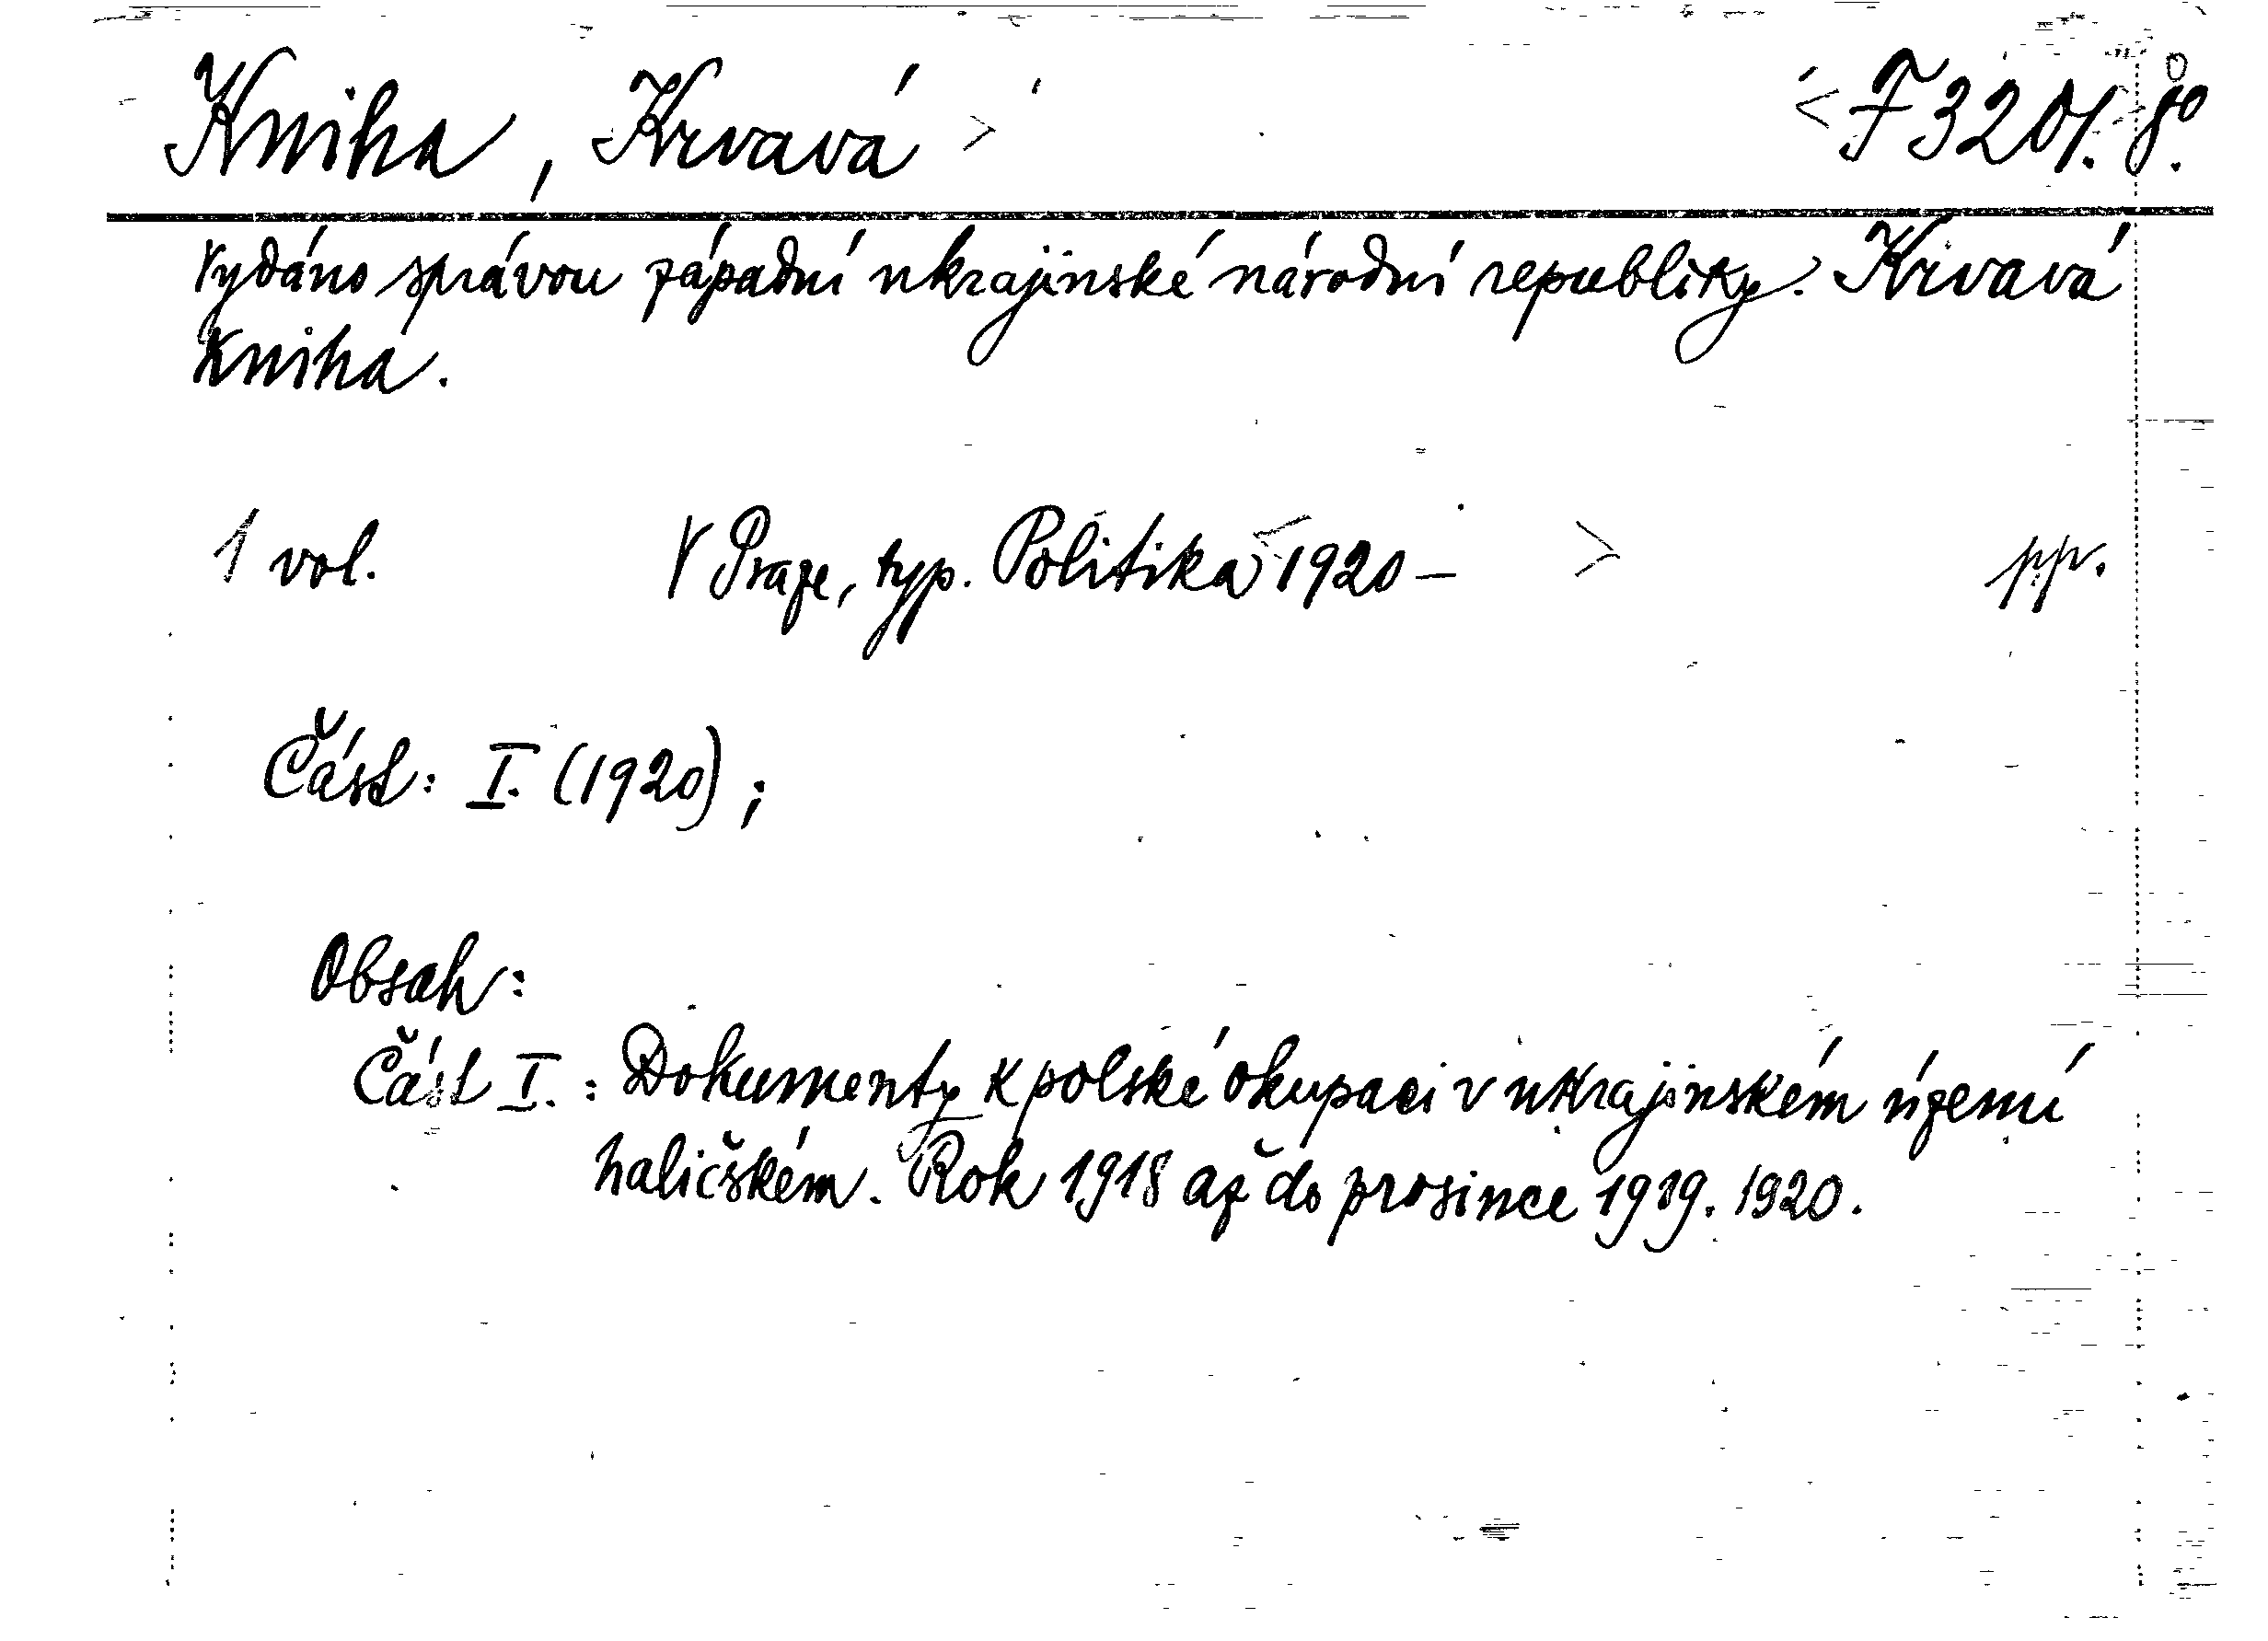 Kniha, Krvavá > < F 3201. 8°.
Vydáno správou západní ukrajinské národní republiky. Krvavá
kniha.
1 vol. V Praze, typ. Politika < 1920 – > pp.
Část: I. (1920);
Obsah:
Část I.: Dokumenty k polské okupaci v ukrajinském území
haličském. Rok 1918 až do prosince 1919. 1920.